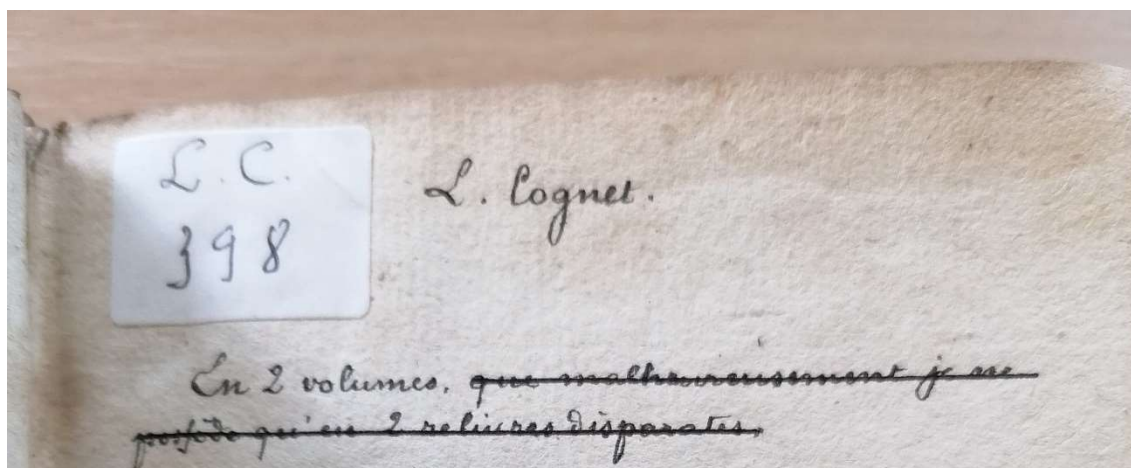 L. C.
398
L. Cognet.
En 2 volumes, que malheureusement je ne
possède qu'en 2 reliures disparates.